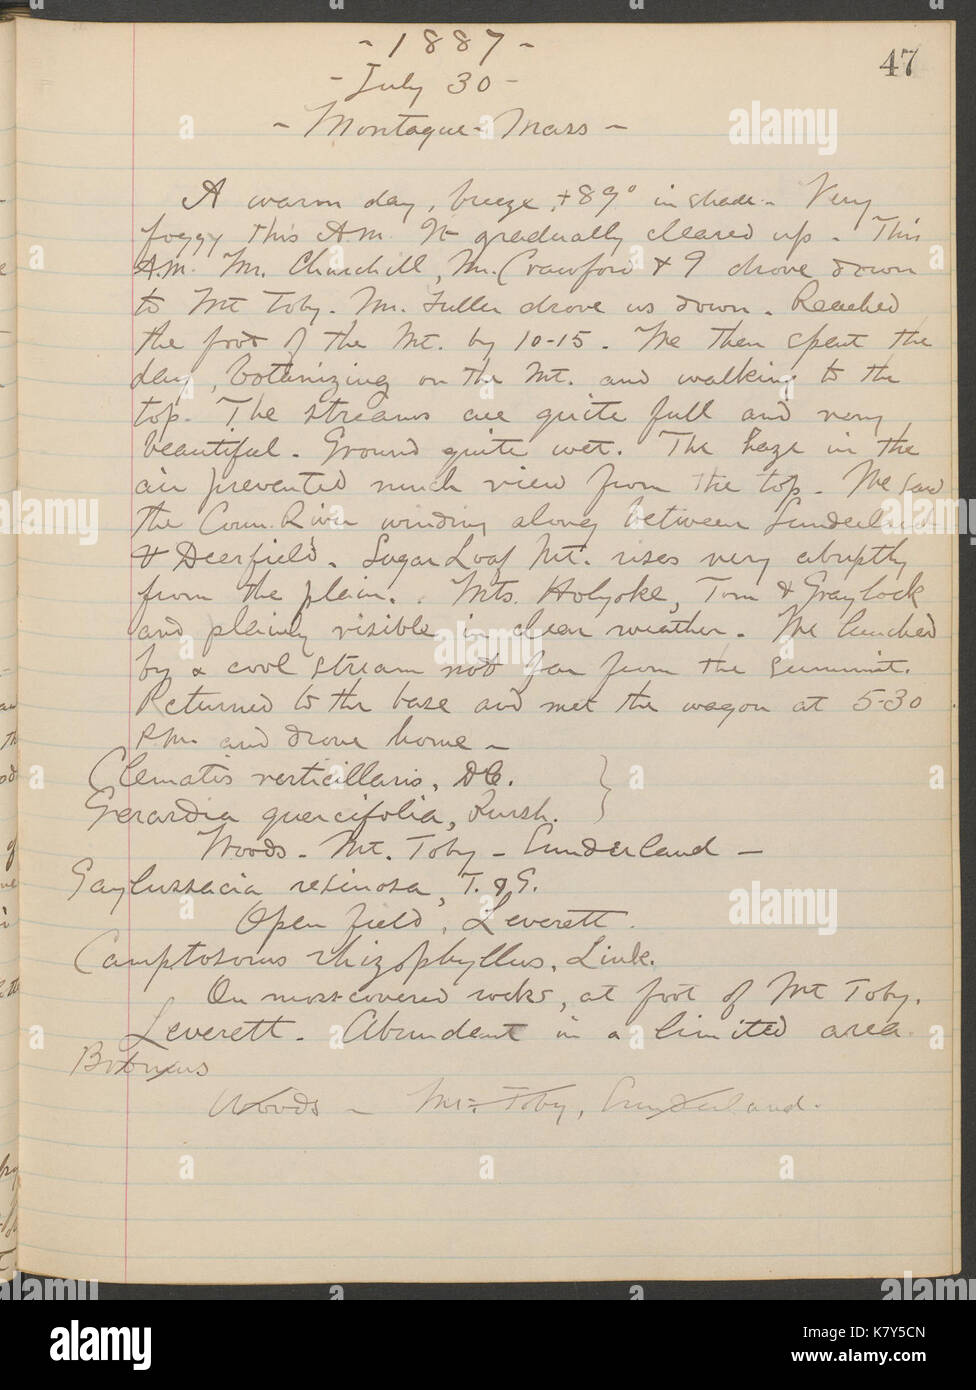 - 1887 -
47
- July 30 -
- Montague - Mass -
A warm day, breeze, +89° in shade - Very
foggy this A.M. It gradually cleared up. This
A.M. Mr. Churchill, Mr. Crawford & I drove down
to Mt Toby. Mr. Fuller drove us down. Reached
the foot of the Mt. by 10-15. We then spent the
day, botanizing on the Mt. and walking to the
top. The streams are quite full and very
beautiful. Ground quite wet. The haze in the
air prevented much view from the top. We saw
the Conn. River winding along between Sunderland
& Deerfield. Sugar Loaf Mt. rises very abruptly
from the plain. Mts. Holyoke, Tom & Graylock
and plainly visible in clear weather. We lunched
by a cool stream not far from the summit.
Returned to the base and met the wagon at 5-30
P.M. and drove home -
Clematis verticillaris, DC.
Gerardia quercifolia, Pursh.
Woods - Mt. Toby - Sunderland -
Gaylussacia resinosa, T. & G.
Open field, Leverett.
Camptosorus rhizophyllus, Link.
On moss-covered rocks, at foot of Mt Toby.
Leverett. Abundant in a limited area.
Woods - Mt. Toby, Sunderland.
alamy
Image ID: K7Y5CN
www.alamy.com